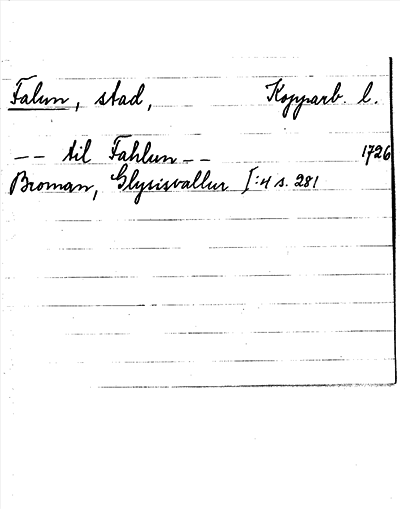 Falun, stad, Kopparb. l.
-- til Fahlun -- 1726
Broman, Glysisvallur I:4 s. 281